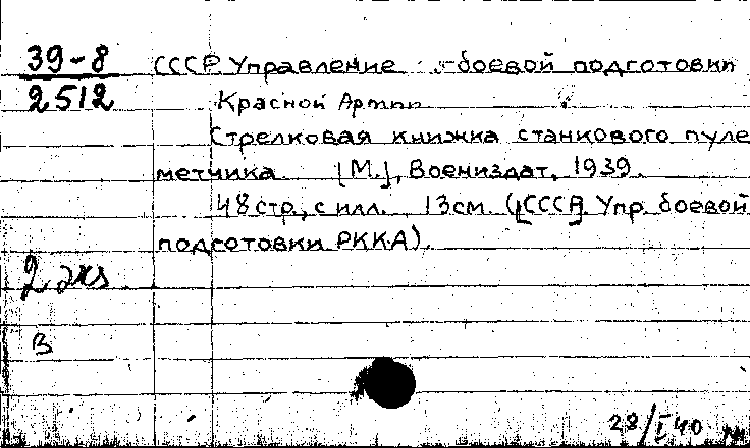 39-8
2512
СССР Управление боевой подготовки
Красной Армии
Стрелковая книжка станкового пуле
метчика [М.], Воениздат, 1939.
48 стр., с илл. 13см. ([СССР]. Упр. боевой
подготовки РККА).
2 экз
В
28/I 40